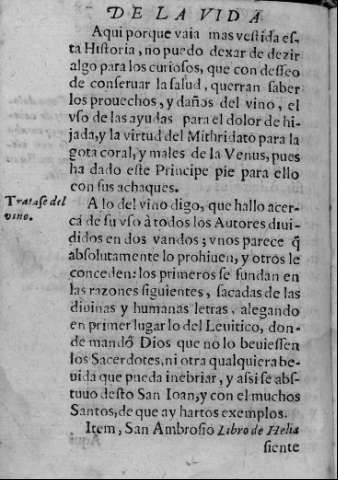 DE LA VIDA
Aqui porque vaia mas vestida es-
ta Historia, no puedo dexar de dezir
algo para los curiosos, que con desseo
de conseruar la salud, querran saber
los prouechos, y daños del vino, el
vso de las ayudas para el dolor de hi-
jada, y la virtud del Mithridato para la
gota coral, y males de la Venus, pues
ha dado este Principe pie para ello
con sus achaques.
Tratase del
vino.
A lo del vino digo, que hallo acer-
ca de su vso à todos los Autores diui-
didos en dos vandos; vnos parece q̃
absolutamente lo prohiuen, y otros le
conceden: los primeros se fundan en
las razones siguientes, sacadas de las
diuinas y humanas letras, alegando
en primer lugar lo del Leuitico, don-
de mandó Dios que no lo beuiessen
los Sacerdotes, ni otra qualquiera be-
uida que pueda inebriar, y assi se abs-
tuuo desto San Ioan, y con el muchos
Santos, de que ay hartos exemplos.
Item, San Ambrosio Libro de Helia
siente